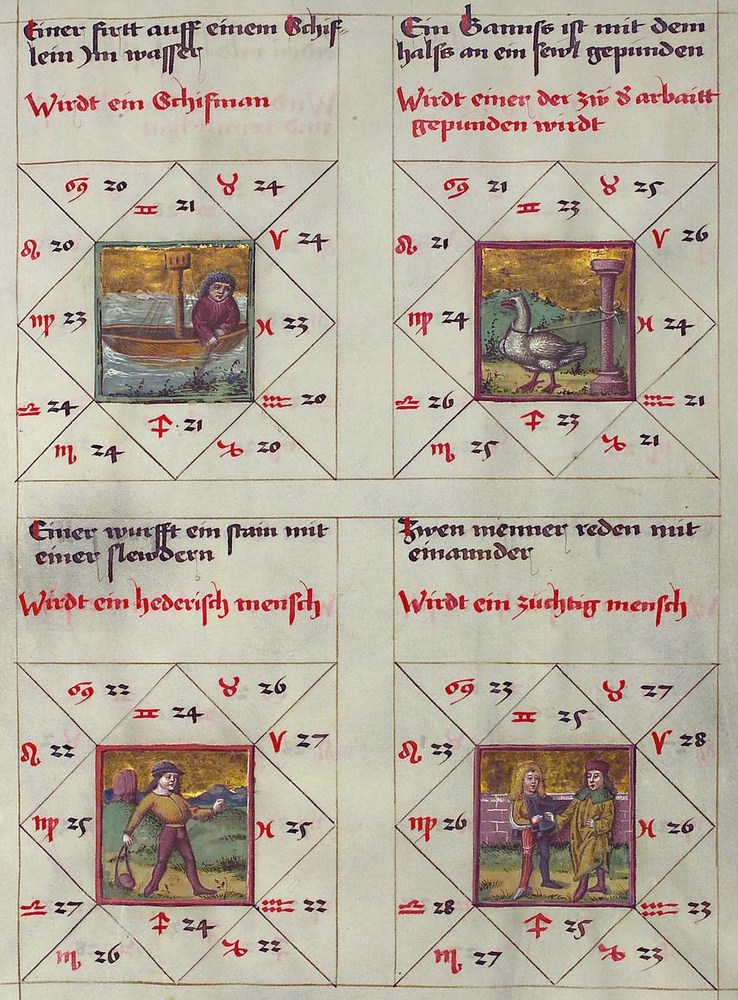 Einer firtt auff einem Schif=
lein Jm wasser
Wirdt ein Schifman
♋ 20 ♉ 24
♊ 21
♌ 20 ♈ 24
♍ 23 ♓ 23
♎ 24 ♒ 20
♐ 21
♏ 24 ♑ 20
Ein Gannss ist mit dem
halss an ein sewl gepunden
Wirdt einer der zw d arbaitt
gepunden wirdt
♋ 21 ♉ 25
♊ 23
♌ 21 ♈ 26
♍ 24 ♓ 24
♎ 26 ♒ 21
♐ 23
♏ 25 ♑ 21
Einer wurfft ein stain mit
einer slewdern
Wirdt ein hederisch mensch
♋ 22 ♉ 26
♊ 24
♌ 22 ♈ 27
♍ 25 ♓ 25
♎ 27 ♒ 22
♐ 24
♏ 26 ♑ 22
Zwen menner reden mit
einannder
Wirdt ein zuchtig mensch
♋ 23 ♉ 27
♊ 25
♌ 23 ♈ 28
♍ 26 ♓ 26
♎ 28 ♒ 23
♐ 25
♏ 27 ♑ 23